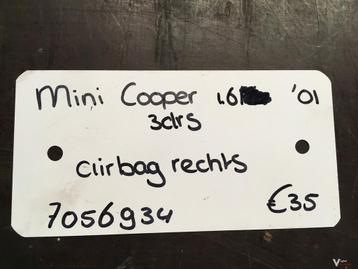 Mini Cooper 1.6 '01
3drs
airbag rechts
7056934 €35